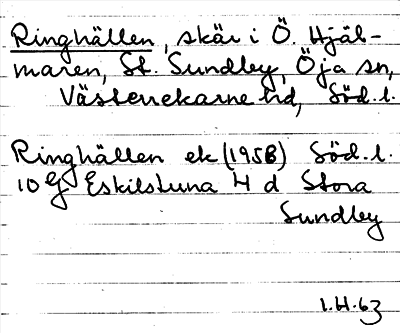 Ringhällen, skär i Ö. Hjäl-
maren, St. Sundby, Öja sn,
Västerrekarne hd, Söd.l.
Ringhällen ek (1958) Söd.l.
10G Eskilstuna 4 d Stora
Sundby
I.H.63